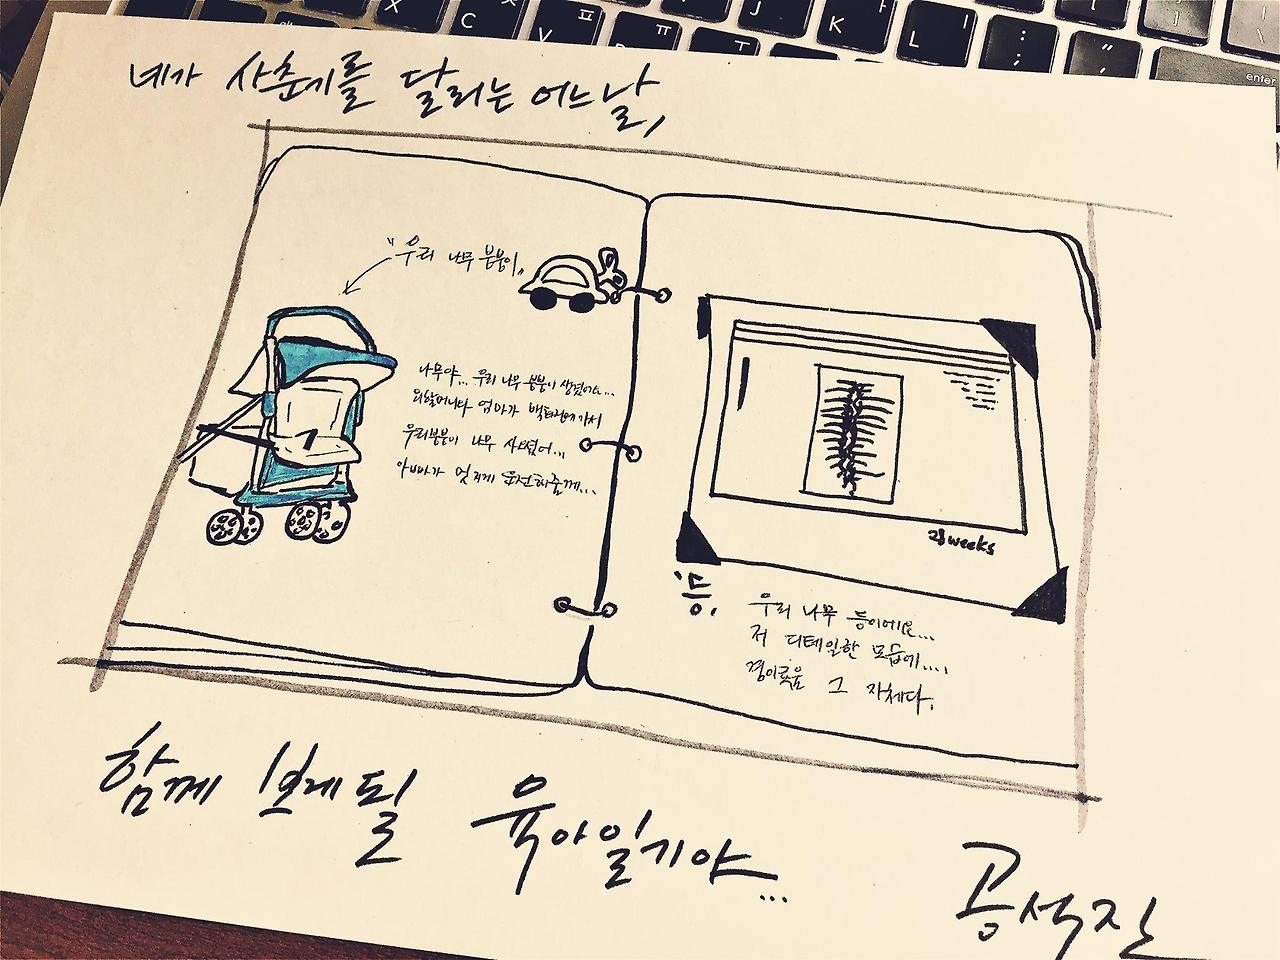 네가 사춘기를 달리는 어느날,
"우리 나무 붕붕이"
나무야... 우리 나무 붕붕이 생겼어요...
외할머니랑 엄마가 백화점에 가서
우리붕붕이 나무 사셨어...
아빠가 멋지게 운전해줄께...
weeks
'등,
우리 나무 등이에요...
저 디테일한 모습에....
경이로움 그 자체다.
함께 보게 될 육아일기야...
공석진
X
C
V
ㅊ
ㅍ
ㅠ
ㅜ
J
K
L
;
:
"
enter